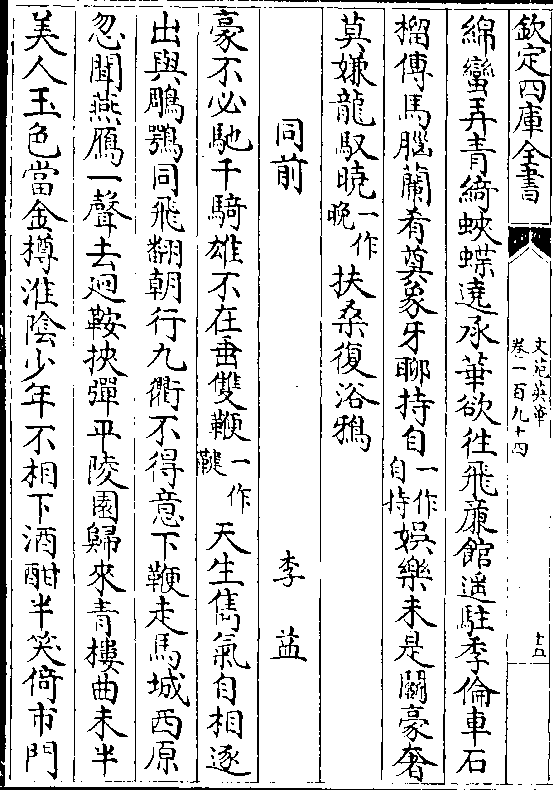 欽定四庫全書
文苑英華
卷一百九十四
十五
綿蠻弄青綺蛺蝶遶承華欲往飛廉館遥駐季倫車石
榴傳馬腦蘭肴奠象牙聊持自一作自持娯樂未是鬭豪奢
莫嫌龍馭曉一作晚扶桑復浴鴉
同前
李益
豪不必馳千騎雄不在垂雙鞬一作鞬天生儁氣自相逐
出與鵰鶚同飛翻朝行九衢不得意下鞭走馬城西原
忽聞燕鴈一聲去廻鞍挾彈平陵園歸來青樓曲未半
美人玉色當金樽淮陰少年不相下酒酣半笑倚市門